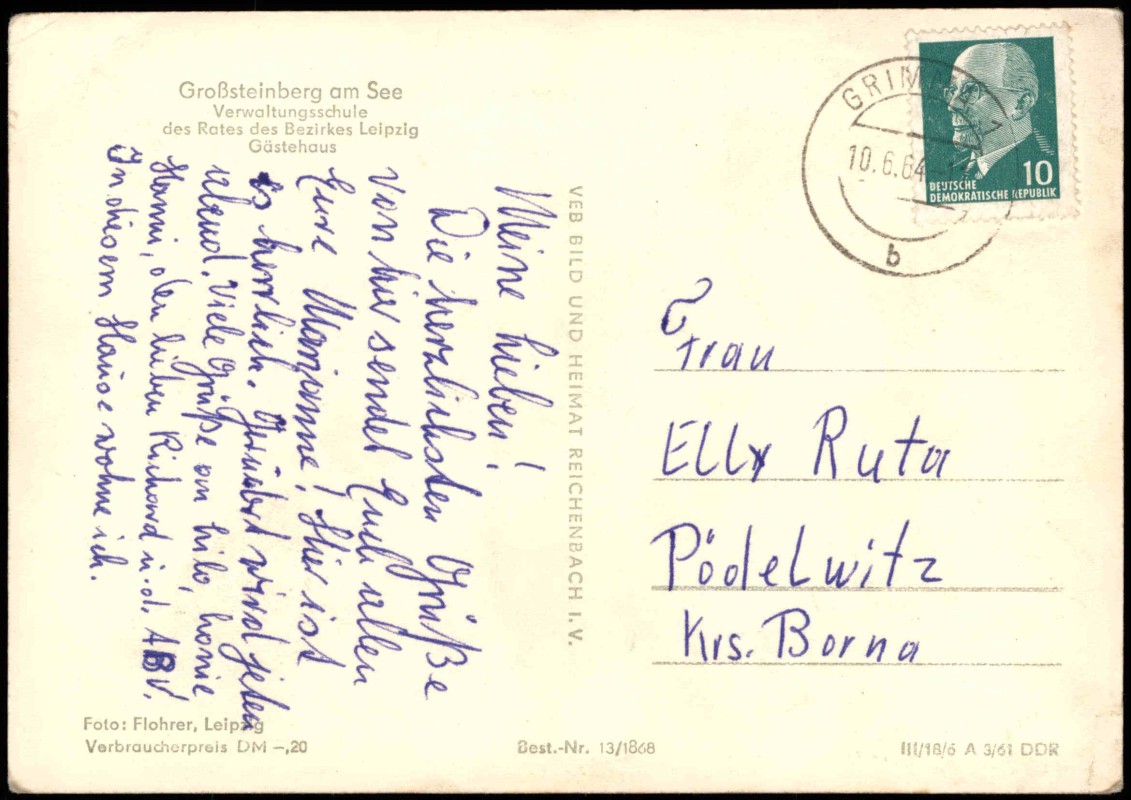 Großsteinberg am See
Verwaltungsschule
des Rates des Bezirkes Leipzig
Gästehaus
Meine Lieben!
Die herzlichsten Grüße
von hier sendet Euch allen
Eure Marianne! Hier ist
es herrlich. Gerudert wird jeden
abend. Viele Grüße an Lilo,
Hanni, den lieben Richard u. d. ABV.
In diesem Hause wohne ich.
VEB BILD UND HEIMAT REICHENBACH I. V.
GRIMMA 1
10.6.64
b
10
DEUTSCHE
DEMOKRATISCHE REPUBLIK
Frau
Elly Ruta
Pödelwitz
Krs. Borna
Foto: Flohrer, Leipzig
Verbraucherpreis DM –,20
Best.-Nr. 13/1868
III/18/6 A 3/61 DDR